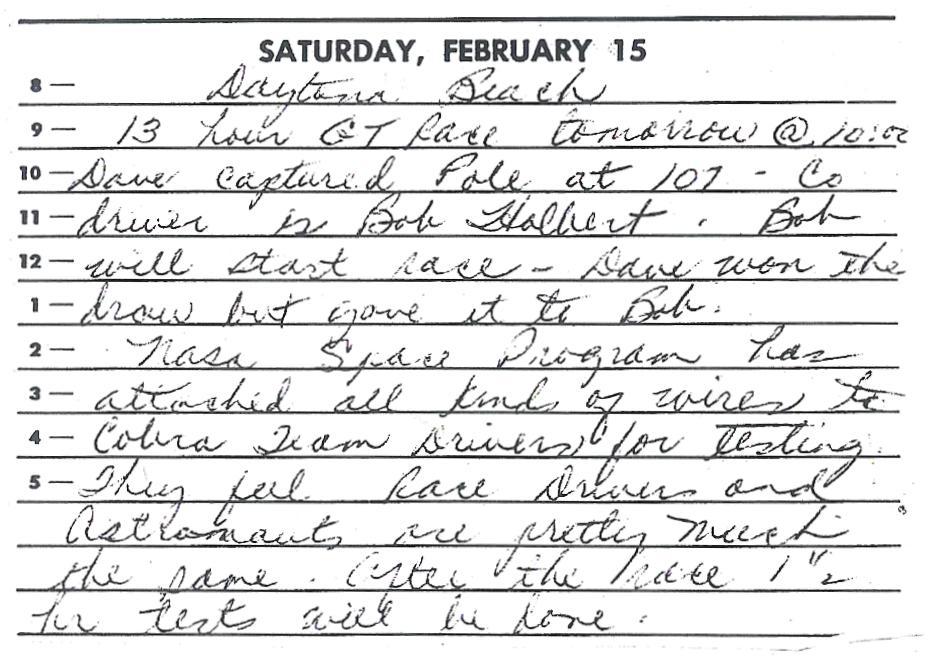 SATURDAY, FEBRUARY 15
8 — Daytona Beach
9 — 13 hour GT Race tomorrow @ 10:00
10 — Dave captured Pole at 107 - Co
11 — driver is Bob Holbert. Bob
12 — will start race - Dave won the
1 — draw but gave it to Bob.
2 — Nasa Space Program has
3 — attached all kinds of wires to
4 — Cobra Team Drivers for testing
5 — They feel Race Drivers and
Astronauts are pretty much
the same. After the race 1 1/2
hr tests will be done.